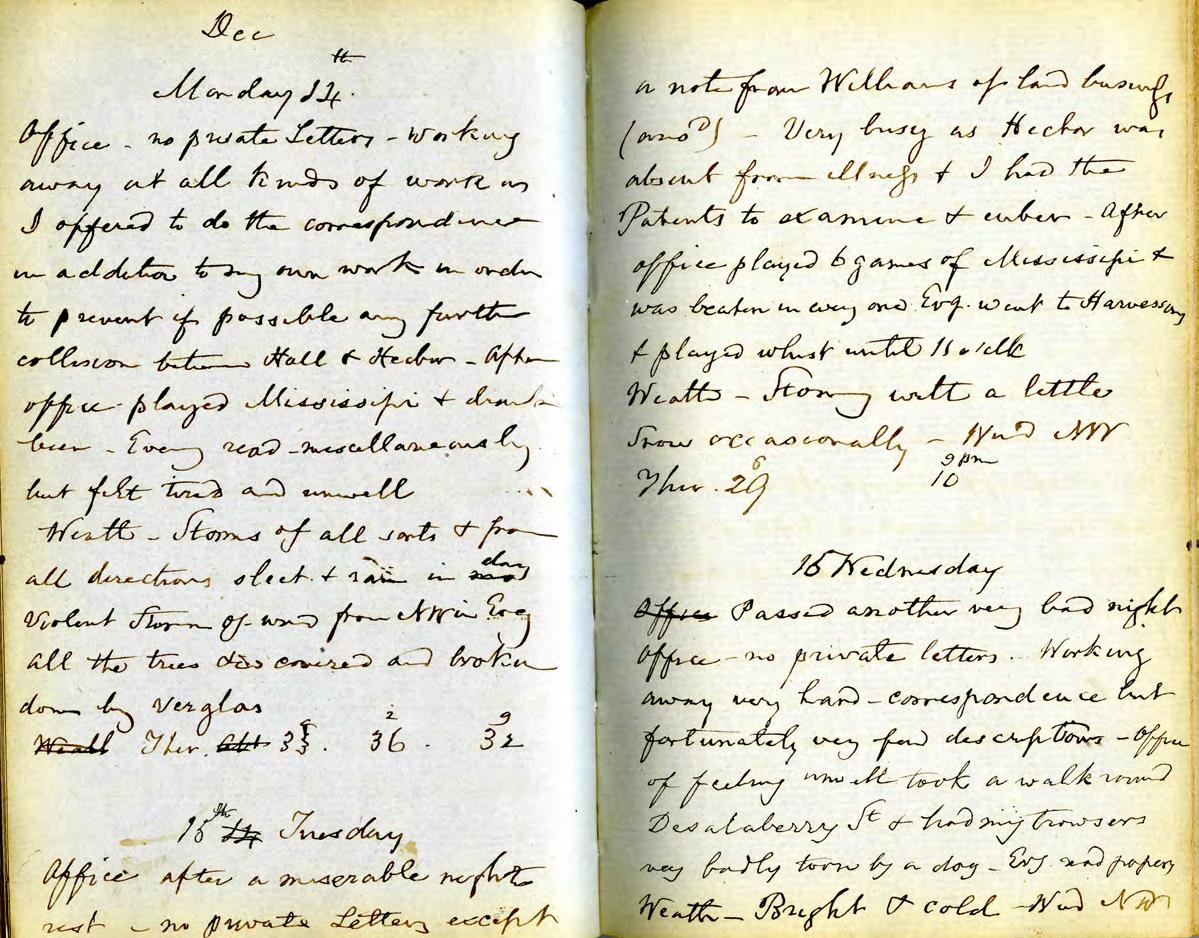 Dec
Monday 14th.
Office - no private Letters - Working
away at all kinds of work as
I offered to do the correspondence
in addition to my own work in order
to prevent if possible any further
collision between Hall & Hector - After
office played Mississipi & drank
beer - Eveng read miscellaneously
but felt tired and unwell
Weath - Storms of all sorts & from
all directions sleet & rain in day
Violent Storm of wind from NW in Evg
all the trees covered and broken
down by verglas
Weath Ther. 8 33. 2 36. 9 32
15th 14 Tuesday
Office after a miserable nights
rest - no private Letters except
a note from Williams of land business
(ansd) - Very busy as Hector was
absent from illness & I had the
Patents to examine & - After
office played 6 games of Mississipi &
was beaten in every one. Evg. went to
& played whist until 11 oclk
Weath - Stormy with a little
Snow occasionally - Wind NW
Ther. 8 29 9 pm 10
16 Wednesday
Office Passed another very bad night
Office - no private letters. Working
away very hard - correspondence but
fortunately very few descriptions - Office
of feeling unwell took a walk round
Desalaberry St & had my trowsers
very badly torn by a dog - Evg. read papers
Weath - Bright & cold - Wind NW